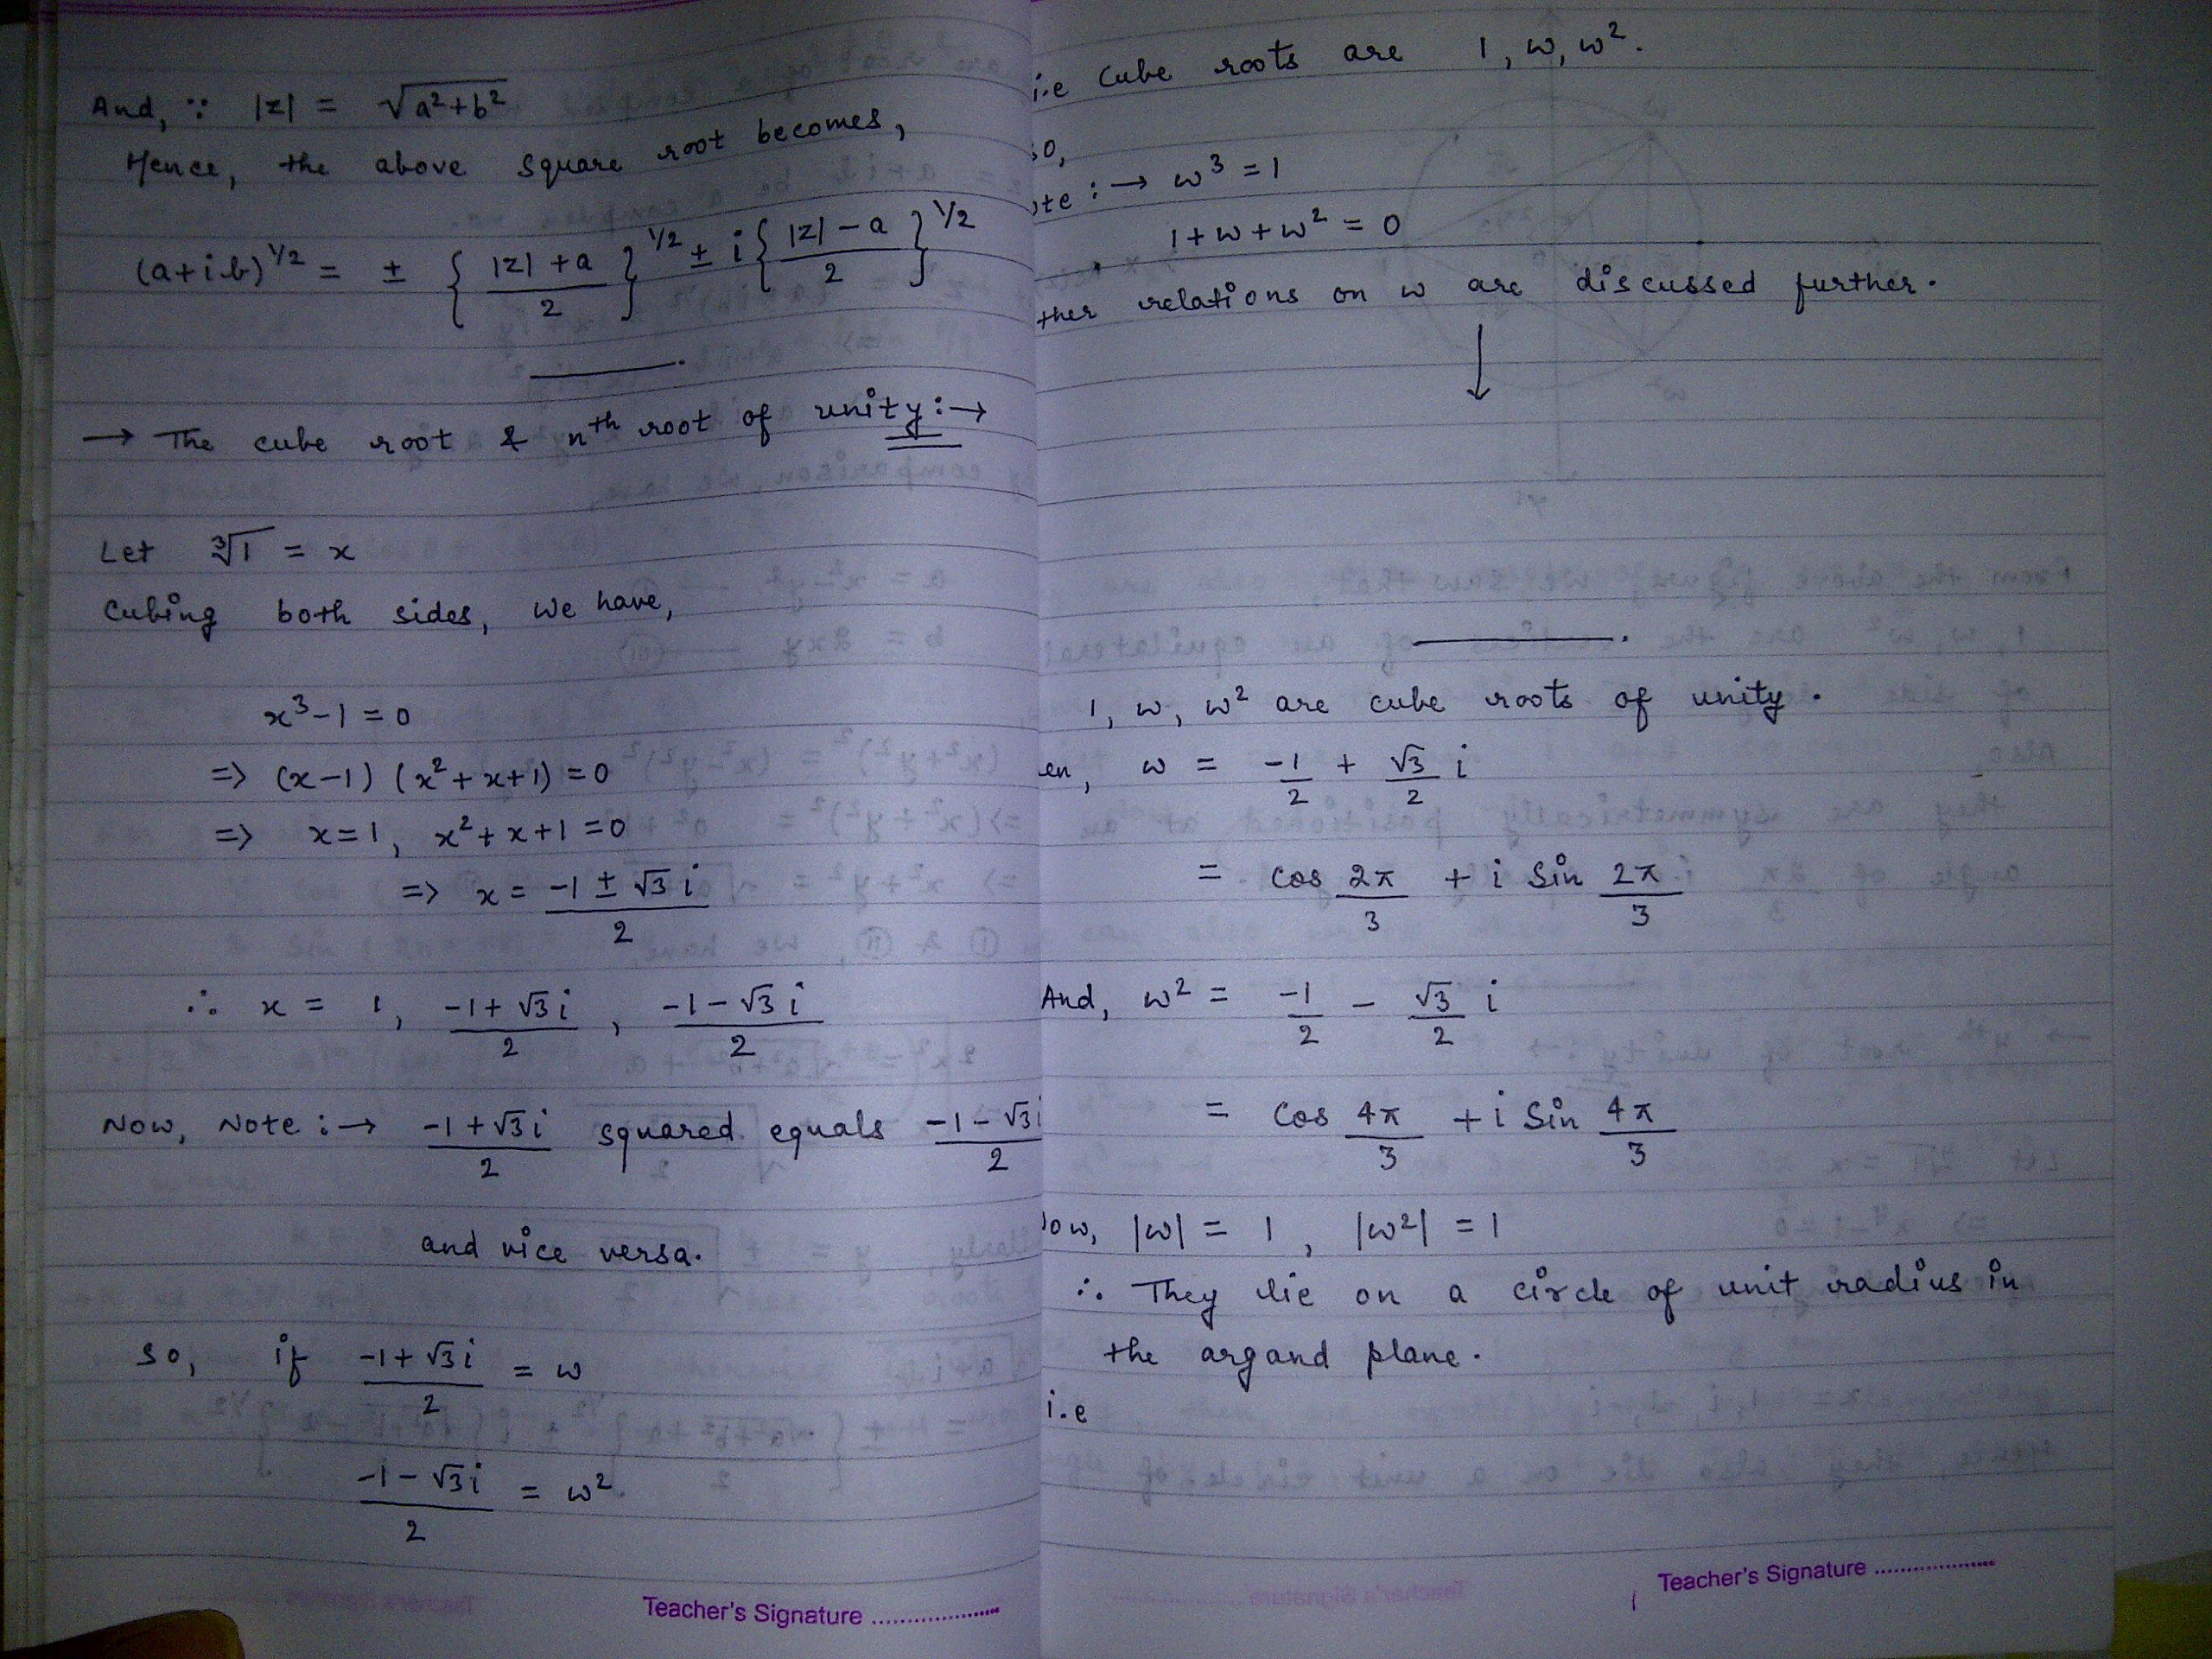 And, ∵ |z| = √a²+b²
Hence, the above square root becomes,
(a+ib)^1/2 = ± { |z|+a / 2 }^1/2 ± i { |z|-a / 2 }^1/2
→ The cube root & nth root of unity :→
Let ∛1 = x
Cubing both sides, we have,
x³-1 = 0
=> (x-1) (x²+x+1) = 0
=> x=1, x²+x+1 = 0
=> x = -1 ± √3 i / 2
∴ x = 1, -1+√3 i / 2 , -1-√3 i / 2
Now, Note :→ -1+√3 i / 2 squared equals -1-√3 i / 2
and vice versa.
so, if -1+√3 i / 2 = ω
-1-√3 i / 2 = ω²
Teacher's Signature ....................
i.e Cube roots are 1, ω, ω².
so,
ote :→ ω³ = 1
1+ω+ω² = 0
ther relations on ω are discussed further.
↓
1, ω, ω² are cube roots of unity.
en, ω = -1/2 + √3/2 i
= cos 2π/3 + i Sin 2π/3
And, ω² = -1/2 - √3/2 i
= cos 4π/3 + i Sin 4π/3
ow, |ω| = 1 , |ω²| = 1
∴ They lie on a circle of unit radius in
the argand plane.
i.e
Teacher's Signature ....................